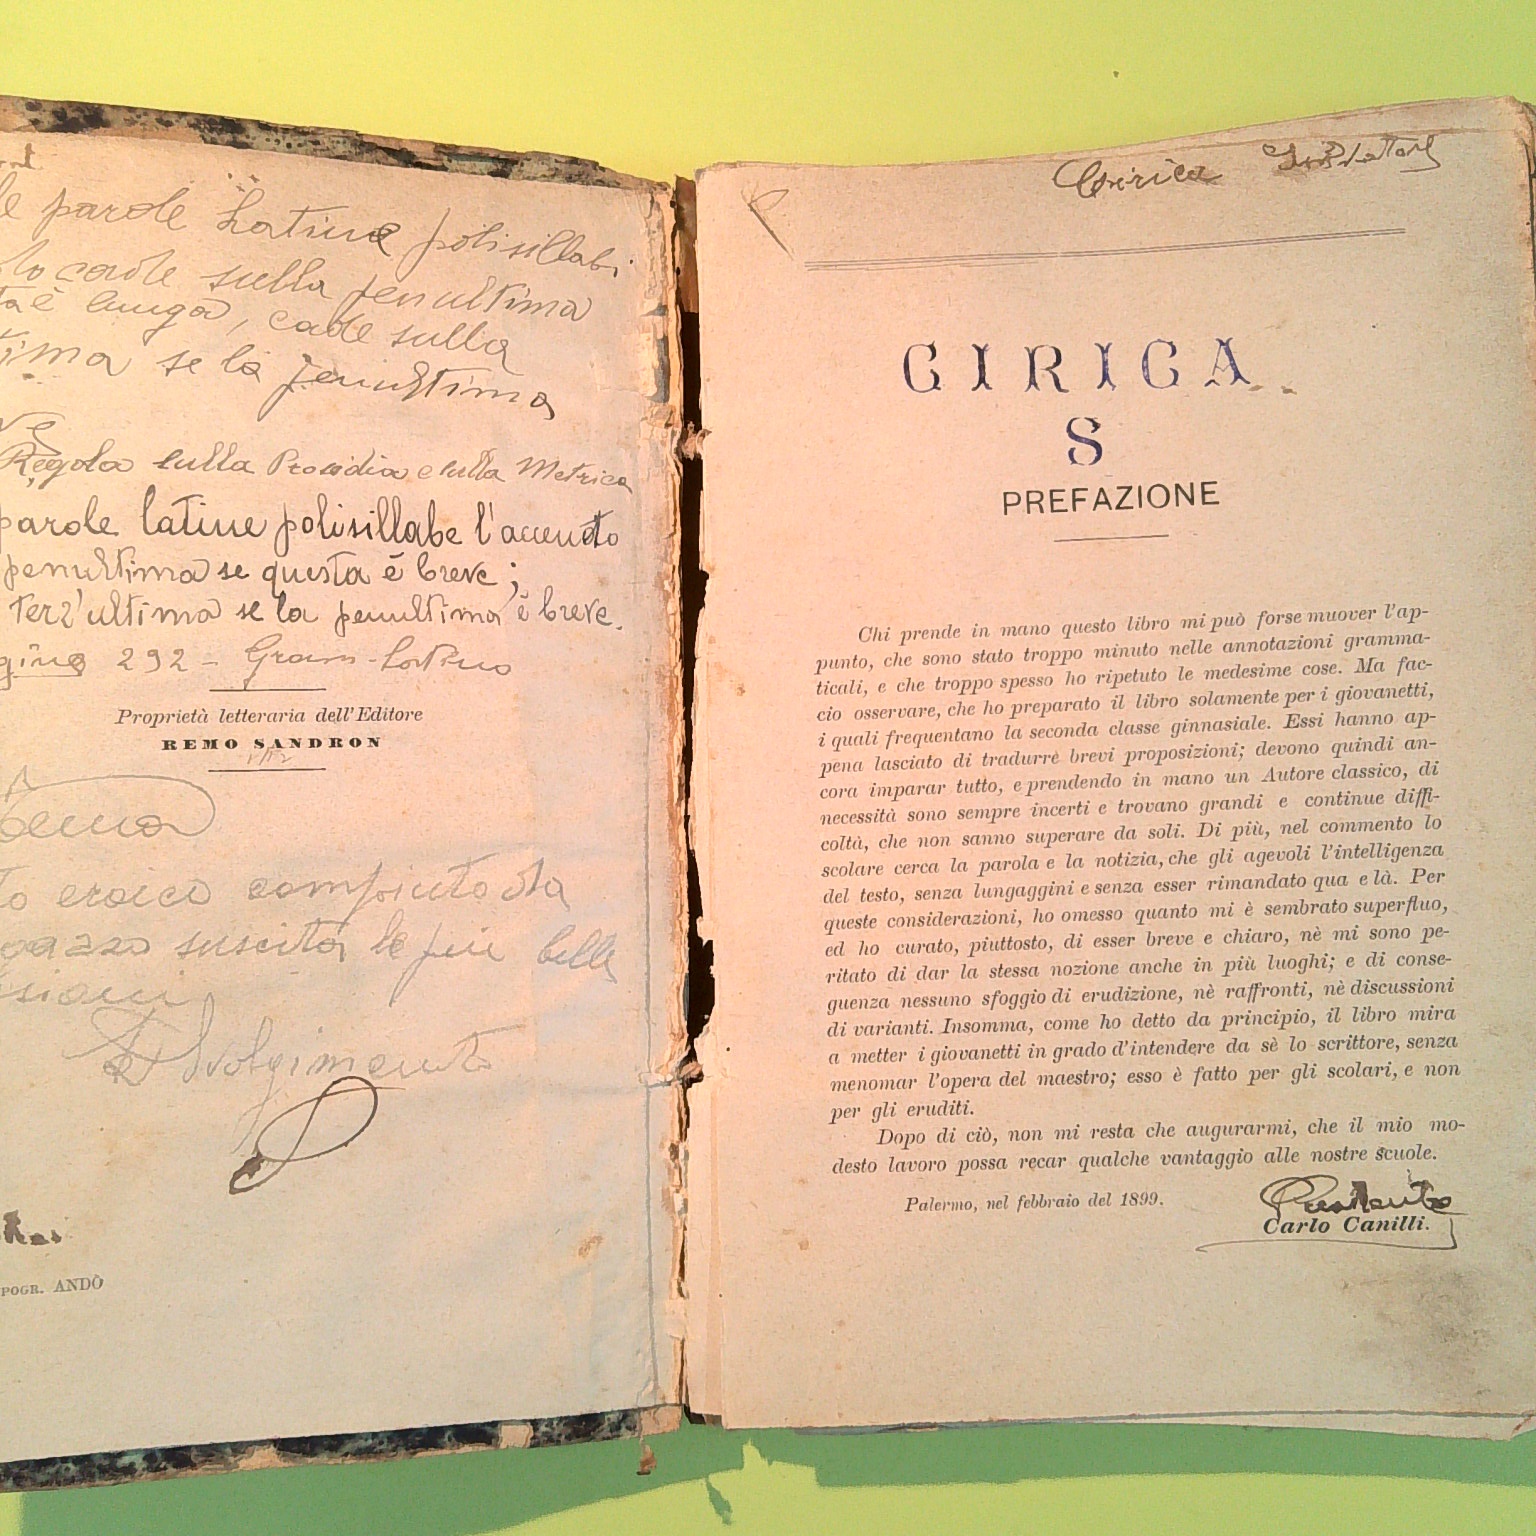 le parole Latine polisillabi
lo cade sulla penultima
ta è lunga, cade sulla
tima se la penultima
Regola sulla Prosodia e sulla Metrica
parole latine polisillabe l'accento
penultima se questa è breve;
terz'ultima se la penultima è breve.
gina 292 - Gram-Latino
Proprietà letteraria dell'Editore
REMO SANDRON
Tema
to eroico compiuto da
gazzo suscita le più belle
sioni
Svolgimento
POGR. ANDÒ
Cirica
CIRICA
S
PREFAZIONE
Chi prende in mano questo libro mi può forse muover l'ap-
punto, che sono stato troppo minuto nelle annotazioni gramma-
ticali, e che troppo spesso ho ripetuto le medesime cose. Ma fac-
cio osservare, che ho preparato il libro solamente per i giovanetti,
i quali frequentano la seconda classe ginnasiale. Essi hanno ap-
pena lasciato di tradurre brevi proposizioni; devono quindi an-
cora imparar tutto, e prendendo in mano un Autore classico, di
necessità sono sempre incerti e trovano grandi e continue diffi-
coltà, che non sanno superare da soli. Di più, nel commento lo
scolare cerca la parola e la notizia, che gli agevoli l'intelligenza
del testo, senza lungaggini e senza esser rimandato qua e là. Per
queste considerazioni, ho omesso quanto mi è sembrato superfluo,
ed ho curato, piuttosto, di esser breve e chiaro, nè mi sono pe-
ritato di dar la stessa nozione anche in più luoghi; e di conse-
guenza nessuno sfoggio di erudizione, nè raffronti, nè discussioni
di varianti. Insomma, come ho detto da principio, il libro mira
a metter i giovanetti in grado d'intendere da sè lo scrittore, senza
menomar l'opera del maestro; esso è fatto per gli scolari, e non
per gli eruditi.
Dopo di ciò, non mi resta che augurarmi, che il mio mo-
desto lavoro possa recar qualche vantaggio alle nostre scuole.
Palermo, nel febbraio del 1899.
Carlo Canilli.